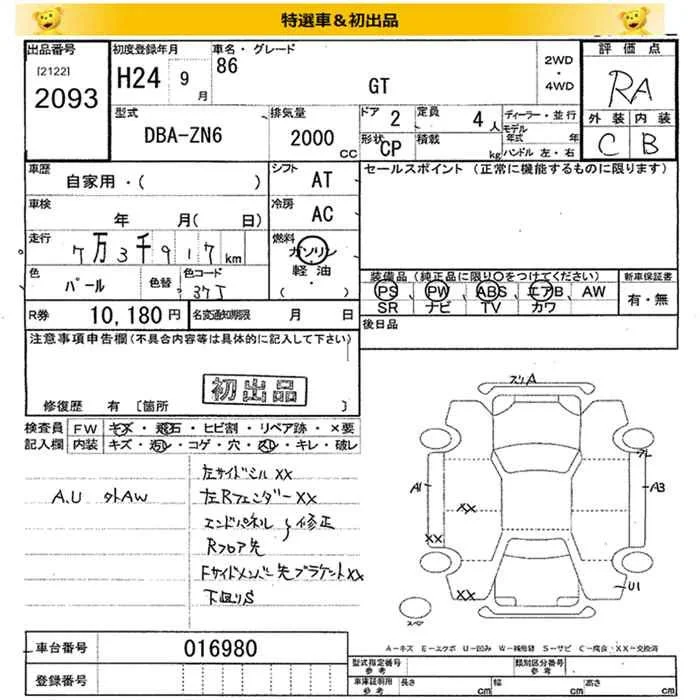 特選車&初出品
出品番号
[2122]
2093
初度登録年月
H24 9月
車名・グレード
86
GT
2WD
・
4WD
評価点
RA
外装 内装
C B
型式
DBA-ZN6
排気量
2000 CC
ドア 2
定員 4人
形状 CP
積載 kg
ディーラー・並行
モデル年式 年
ハンドル 左・右
車歴
自家用・( )
シフト AT
車検
年 月( 日)
冷房 AC
走行
7万3千917km
燃料
ガソリン
軽油
( ・ )
色
パール
色替
色コード
37J
R券 10,180円
名変通知期限 月 日
セールスポイント(正常に機能するものに限ります)
装備品(純正品に限り〇をつけてください)
PS、PW、ABS、エアB、AW
SR ナビ TV カワ
新車保証書
有・無
後日品
注意事項申告欄(不具合内容等は具体的に記入して下さい)
初出品
修復歴 有 [箇所 ]
検査員記入欄
FW キズ・飛石・ヒビ割・リペア跡・×要
内装 キズ・汚レ・コゲ・穴・スレ・キレ・破レ
A.U 外AW
左サイドシル XX
左Rフェンダー XX
エンドパネル 修正
Rフロア先
Fサイドメンバー先ブラケットXX
下回りS
ズリA
A1
A3
XX
XX
XX
U1
スペア
A―キズ E―エクボ U―凹み W―補修跡 S―サビ C―腐食 XX―交換済
車台番号 016980
登録番号
型式指定番号
参考
類別区分番号
参考
車庫証明用
参考
長さ cm 幅 cm 高さ cm